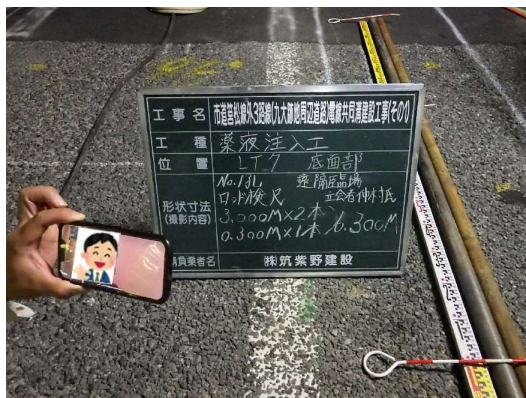 工事名 市道筥松線外3路線(九大跡地周辺道路)電線共同溝建設工事(その1)
工種 薬液注入工
位置 LT.7 底面部
No.13L 遠隔臨場
形状寸法 ロッド検尺 立会者 仲村氏
(撮影内容) 3.000M×2本
0.300M×1本 6.300M
請負業者名 (株)筑紫野建設